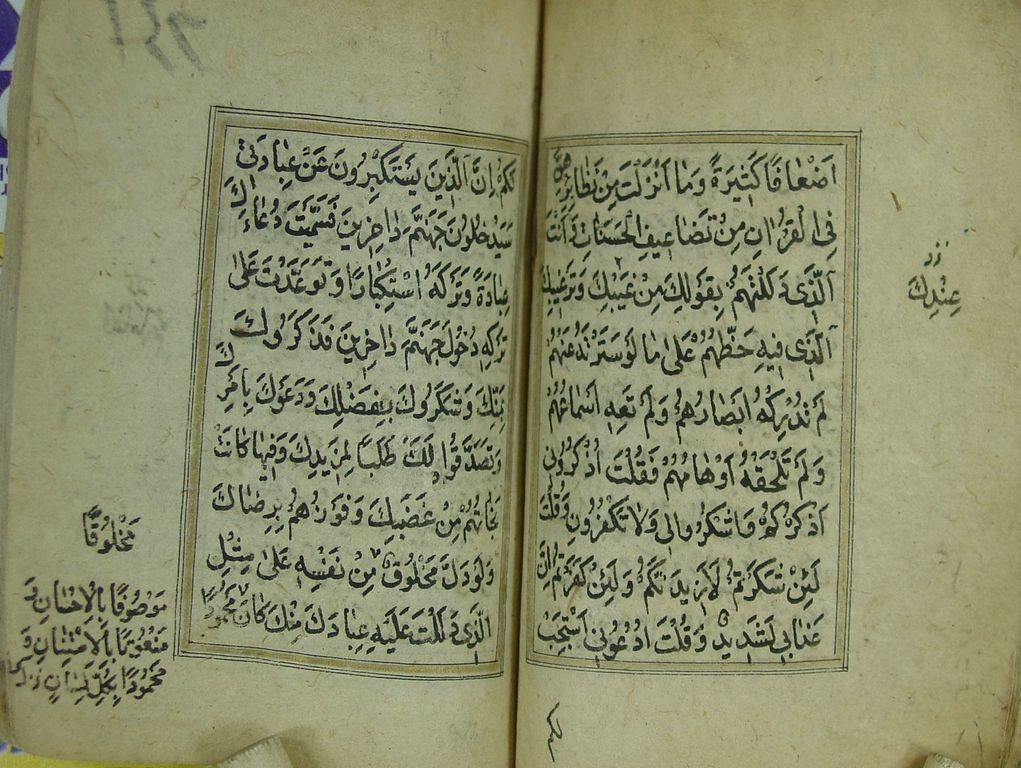 اَضْعَافًا كَثِيرَةً وَمَا اَنْزَلْتَ مِنْ نَظَايِرِهِنَّ
فِى الْقُرْاٰنِ مِنْ تَضَاعِيفِ الْحَسَنَاتِ وَاَنْتَ
الَّذِى دَلَلْتَهُمْ بِقَوْلِكَ مِنْ غَيْبِكَ وَتَرْغِيبِكَ
الَّذِى فِيهِ حَظُّهُمْ عَلىٰ مَا لَوْ سَتَرْتَهُ عَنْهُمْ
لَمْ تُدْرِكْهُ اَبْصَارُهُمْ وَلَمْ تَعِهِ اَسْمَاعُهُمْ
وَلَمْ تَلْحَقْهُ اَوْهَامُهُمْ فَقُلْتَ اُذْكُرُونِى
اَذْكُرْكُمْ وَاشْكُرُوا لِى وَلَا تَكْفُرُونِ وَقُلْتَ
لَئِنْ شَكَرْتُمْ لَاَزِيدَنَّكُمْ وَلَئِنْ كَفَرْتُمْ اِنَّ
عَذَابِى لَشَدِيدٌ وَقُلْتَ ادْعُونِى اَسْتَجِبْ
عِنْدِكَ
لَكُمْ اِنَّ الَّذِينَ يَسْتَكْبِرُونَ عَنْ عِبَادَتِى
سَيَدْخُلُونَ جَهَنَّمَ دَاخِرِينَ فَسَمَّيْتَ دُعَاءَكَ
عِبَادَةً وَتَرْكَهُ اسْتِكْبَارًا وَتَوَعَّدْتَ عَلىٰ
تَرْكِهِ دُخُولَ جَهَنَّمَ دَاخِرِينَ فَذَكَرُوكَ
بِمَنِّكَ وَشَكَرُوكَ بِفَضْلِكَ وَدَعَوْكَ بِاَمْرِكَ
وَتَصَدَّقُوا لَكَ طَلَبًا لِمَزِيدِكَ وَفِيهَا كَانَتْ
نَجَاتُهُمْ مِنْ غَضَبِكَ وَفَوْزُهُمْ بِرِضَاكَ
وَلَوْ دَلَّ مَخْلُوقٌ مِنْ نَفْسِهِ عَلىٰ مِثْلِ
الَّذِى دَلَلْتَ عَلَيْهِ عِبَادَكَ مِنْكَ كَانَ مَحْمُودًا
مَخْلُوقًا
مَوْصُوفًا بِالْاِحْسَانِ وَ
مَنْعُوتًا بِالْاِمْتِنَانِ وَ
مَحْمُودًا بِكُلِّ لِسَانٍ